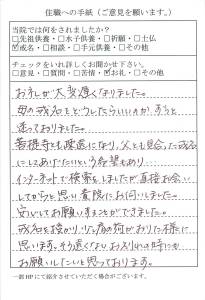 住職への手紙（ご意見を願います。）
当院では何をされましたか？
□先祖供養・□水子供養・□祈願・□土仏
☑戒名・□相談・□手元供養・□その他
チェックをいれ詳しくお聞かせ下さい。
□意見・□質問・□苦情・☑お礼・□その他
お手紙が大変遅くなりました。
母の戒名をどうしたらいいのか、ずっと
迷っておりました。
菩提寺とも疎遠になり、父とも見合った戒名
にしてあげたいという希望もあり
インターネットで検索をしましたが直接お会い
してからと思い、貴院にお伺いしました。
安心してお願いすることができました。
戒名を授かり、1ヶ月の荷がおりた様に
思います。そう遠くなり、お別れの時にも
お願いしたいと思っております。
一部HPにて紹介させていただく場合がございます。